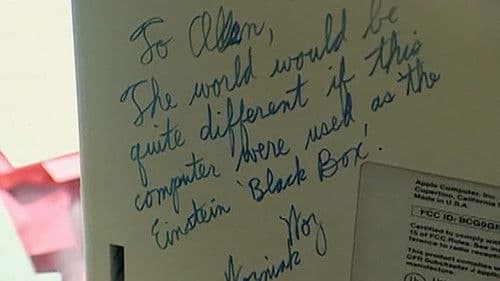 To Allan,
The world would be
quite different if this
computer were used as the
Einstein 'Black Box'.
Woz
Wozniak
Apple Computer, Inc.
Cupertino, California
Made in U.S.A.
FCC ID: BCG9GR
Certified to comply with
15 of FCC Rules. See
ference to radio
This product
CFR Subchapter J
manufacture